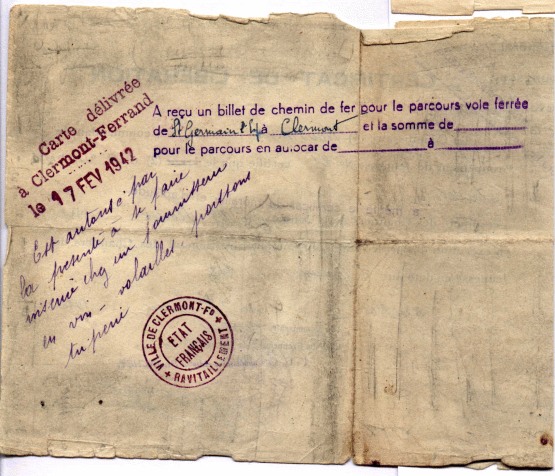 Carte délivrée
à Clermont-Ferrand
le 17 FEV 1942
A reçu un billet de chemin de fer pour le parcours voie ferrée
de St Germain à Clermont et la somme de
pour le parcours en autocar de à
Est autorisé par
la présente à se faire
inscrire chez un fournisseur
en vin - volailles, poissons
VILLE DE CLERMONT-Fd
RAVITAILLEMENT
ETAT
FRANÇAIS